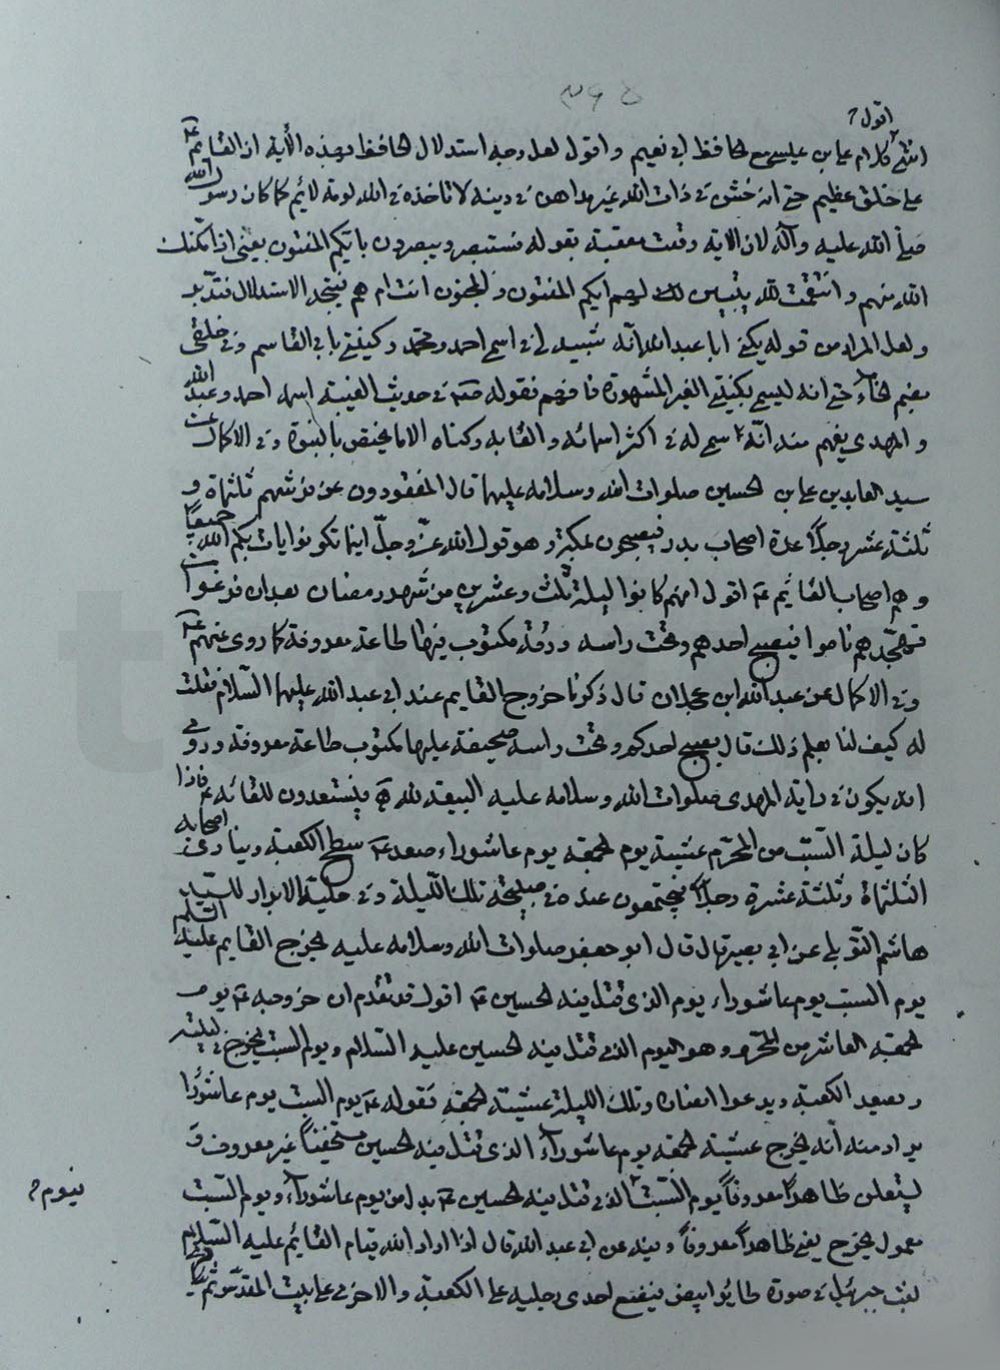 اقول
انتهى كلام علي بن عيسى مع الحافظ ابي نعيم واقول لعل وجه استدلال الحافظ بهذه الآية ان القائم ع
على خلق عظيم حتى انه خشن في ذات الله غير مداهن في دينه لا تاخذه في الله لومة لائم كما كان رسول الله
صلى الله عليه وآله لان الآية وقعت معقبة بقوله فستبصر ويبصرون بايكم المفتون يعني اذا مكنك
الله منهم وانتقمت لله يتبين لك ولهم ايكم المفتون والمجنون انت ام هم فيتجه الاستدلال فتدبر
ولعل المراد من قوله يكنى ابا عبد الله انه شبيه لي في اسمي احمد ومحمد وكنيتي بابي القاسم وفي خلقي
بضم الخاء حتى انه ليسمى بكنيتي الغير المشهورة فافهم فقوله في حديث الغيبة اسمه احمد وعبد الله
والمهدي يفهم منه انه سمي له في اكثر اسمائه والقابه وكناه الا ما يختص بالنبوة وفي الاكمال عن
سيد العابدين علي بن الحسين صلوات الله وسلامه عليهما قال المفقودون عن فرشهم ثلثمائة و
ثلثة عشر رجلا عدة اصحاب بدر فيصبحون بمكة وهو قول الله عز وجل اينما تكونوا يات بكم الله جميعا
وهم اصحاب القائم ع اقول انهم كانوا ليلة ثلث وعشرين من شهر رمضان بعد ان فرغوا من
تهجدهم ناموا فيصبح احدهم وتحت راسه ورقة مكتوب فيها طاعة معروفة كما روى عنهم ع
وفي الاكمال عن عبد الله ابن عجلان قال ذكرنا خروج القايم عند ابي عبد الله عليه السلام فقلت
له كيف لنا بعلم ذلك قال يصبح احدكم وتحت راسه صحيفة عليها مكتوب طاعة معروفة وروي
انه يكون في راية المهدي صلوات الله وسلامه عليه البيعة لله فيستعدون للقائه ع فاذا
كان ليلة السبت من المحرم عشية يوم الجمعة يوم عاشوراء صعد ع سطح الكعبة وينادي اصحابه
الثلثمائة وثلثة عشرة رجلا فيجتمعون عنده في صبيحة تلك الليلة وفي حلية الابرار للسيد
هاشم التوبلي عن ابي بصير قال قال ابو جعفر صلوات الله وسلامه عليه يخرج القايم عليه السلم
يوم السبت يوم عاشوراء يوم الذي قتل فيه الحسين ع اقول قد تقدم ان خروجه ع يوم
الجمعة العاشر من المحرم وهو اليوم الذي قتل فيه الحسين عليه السلام ويوم السبت يخرج في ليلته
ويصعد الكعبة ويدعوا انصاره وتلك الليلة عشية الجمعة فقوله ع يوم السبت يوم عاشورا
يراد منه انه يخرج عشية الجمعة يوم عاشوراء الذي قتل فيه الحسين مستخفيا غير معروف و
ليتعلن ظاهرا معروفا يوم السبت الذي قتل فيه الحسين ع بدل من يوم عاشوراء ويوم السبت
فيوم
معمول يخرج يعني ظاهرا معروفا وفيه عن ابي عبد الله قال اذا اراد الله قيام القائم عليه السلام
بعث جبرئيل في صورة طائر ابيض فيضع احدى رجليه على الكعبة والاخرى على بيت المقدس ثم